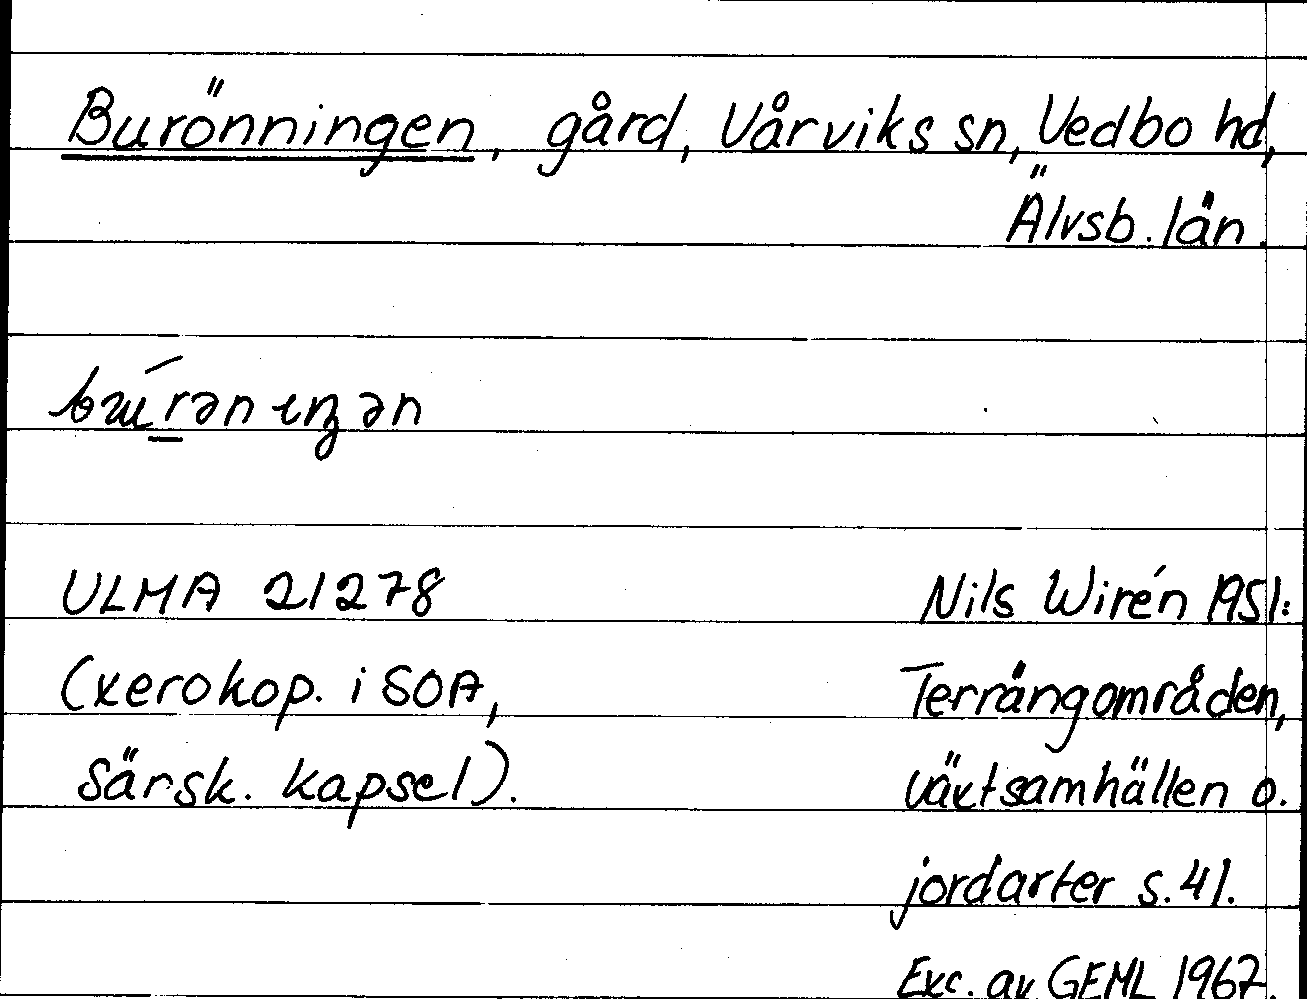 Burönningen, gård, Vårviks sn, Vedbo hd,
Älvsb. län.
ULMA 21278
Nils Wirén 1951:
(xerokop. i SOA,
Terrängområden,
särsk. kapsel).
växtsamhällen o.
jordarter s. 41.
Exc. av GEML 1967.